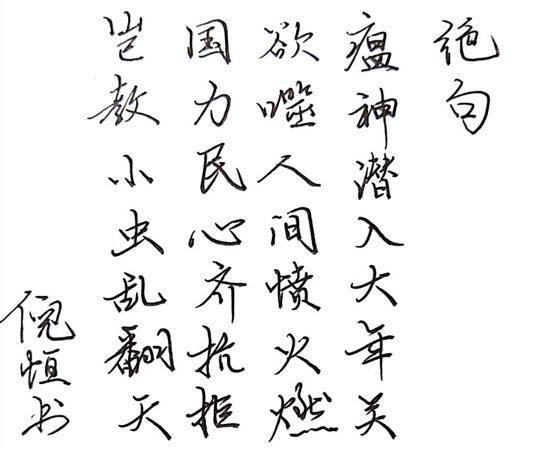 绝句
瘟神潜入大年关
欲噬人间愤火燃
国力民心齐抗拒
岂教小虫乱翻天
倪恒书